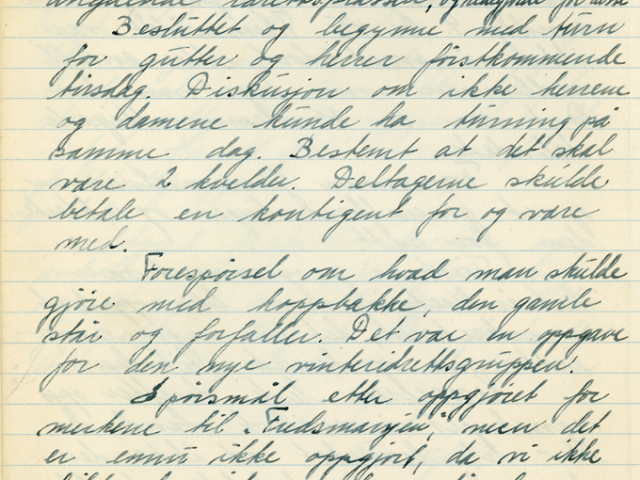 angående
Besluttet og begynne med turn
for gutter og herrer förstkommende
tirsdag. Diskusjon om ikke herrene
og damene kunde ha turning på
samme dag. Bestemt at det skal
være 2 kvelder. Deltagerne skulde
betale en kontigent for og være
med.
Forespörsel om hvad man skulde
gjöre med hoppbakke, den gamle
står og forfaller. Det var en oppgave
for den nye vinteridrettsgruppen.
Spörsmål etter oppgjöret for
merkene til "Fredsmarsjen", men det
er ennu ikke oppgjort, da vi ikke